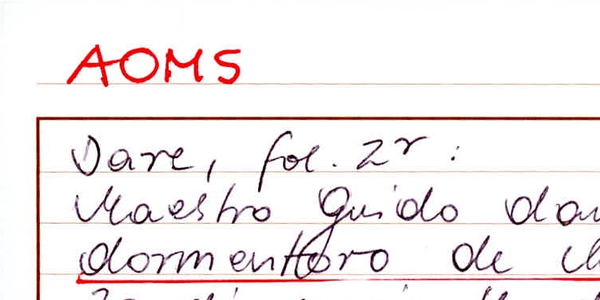 AOMS
Dare, fol. 2r :
Maestro Guido
dormentoro de